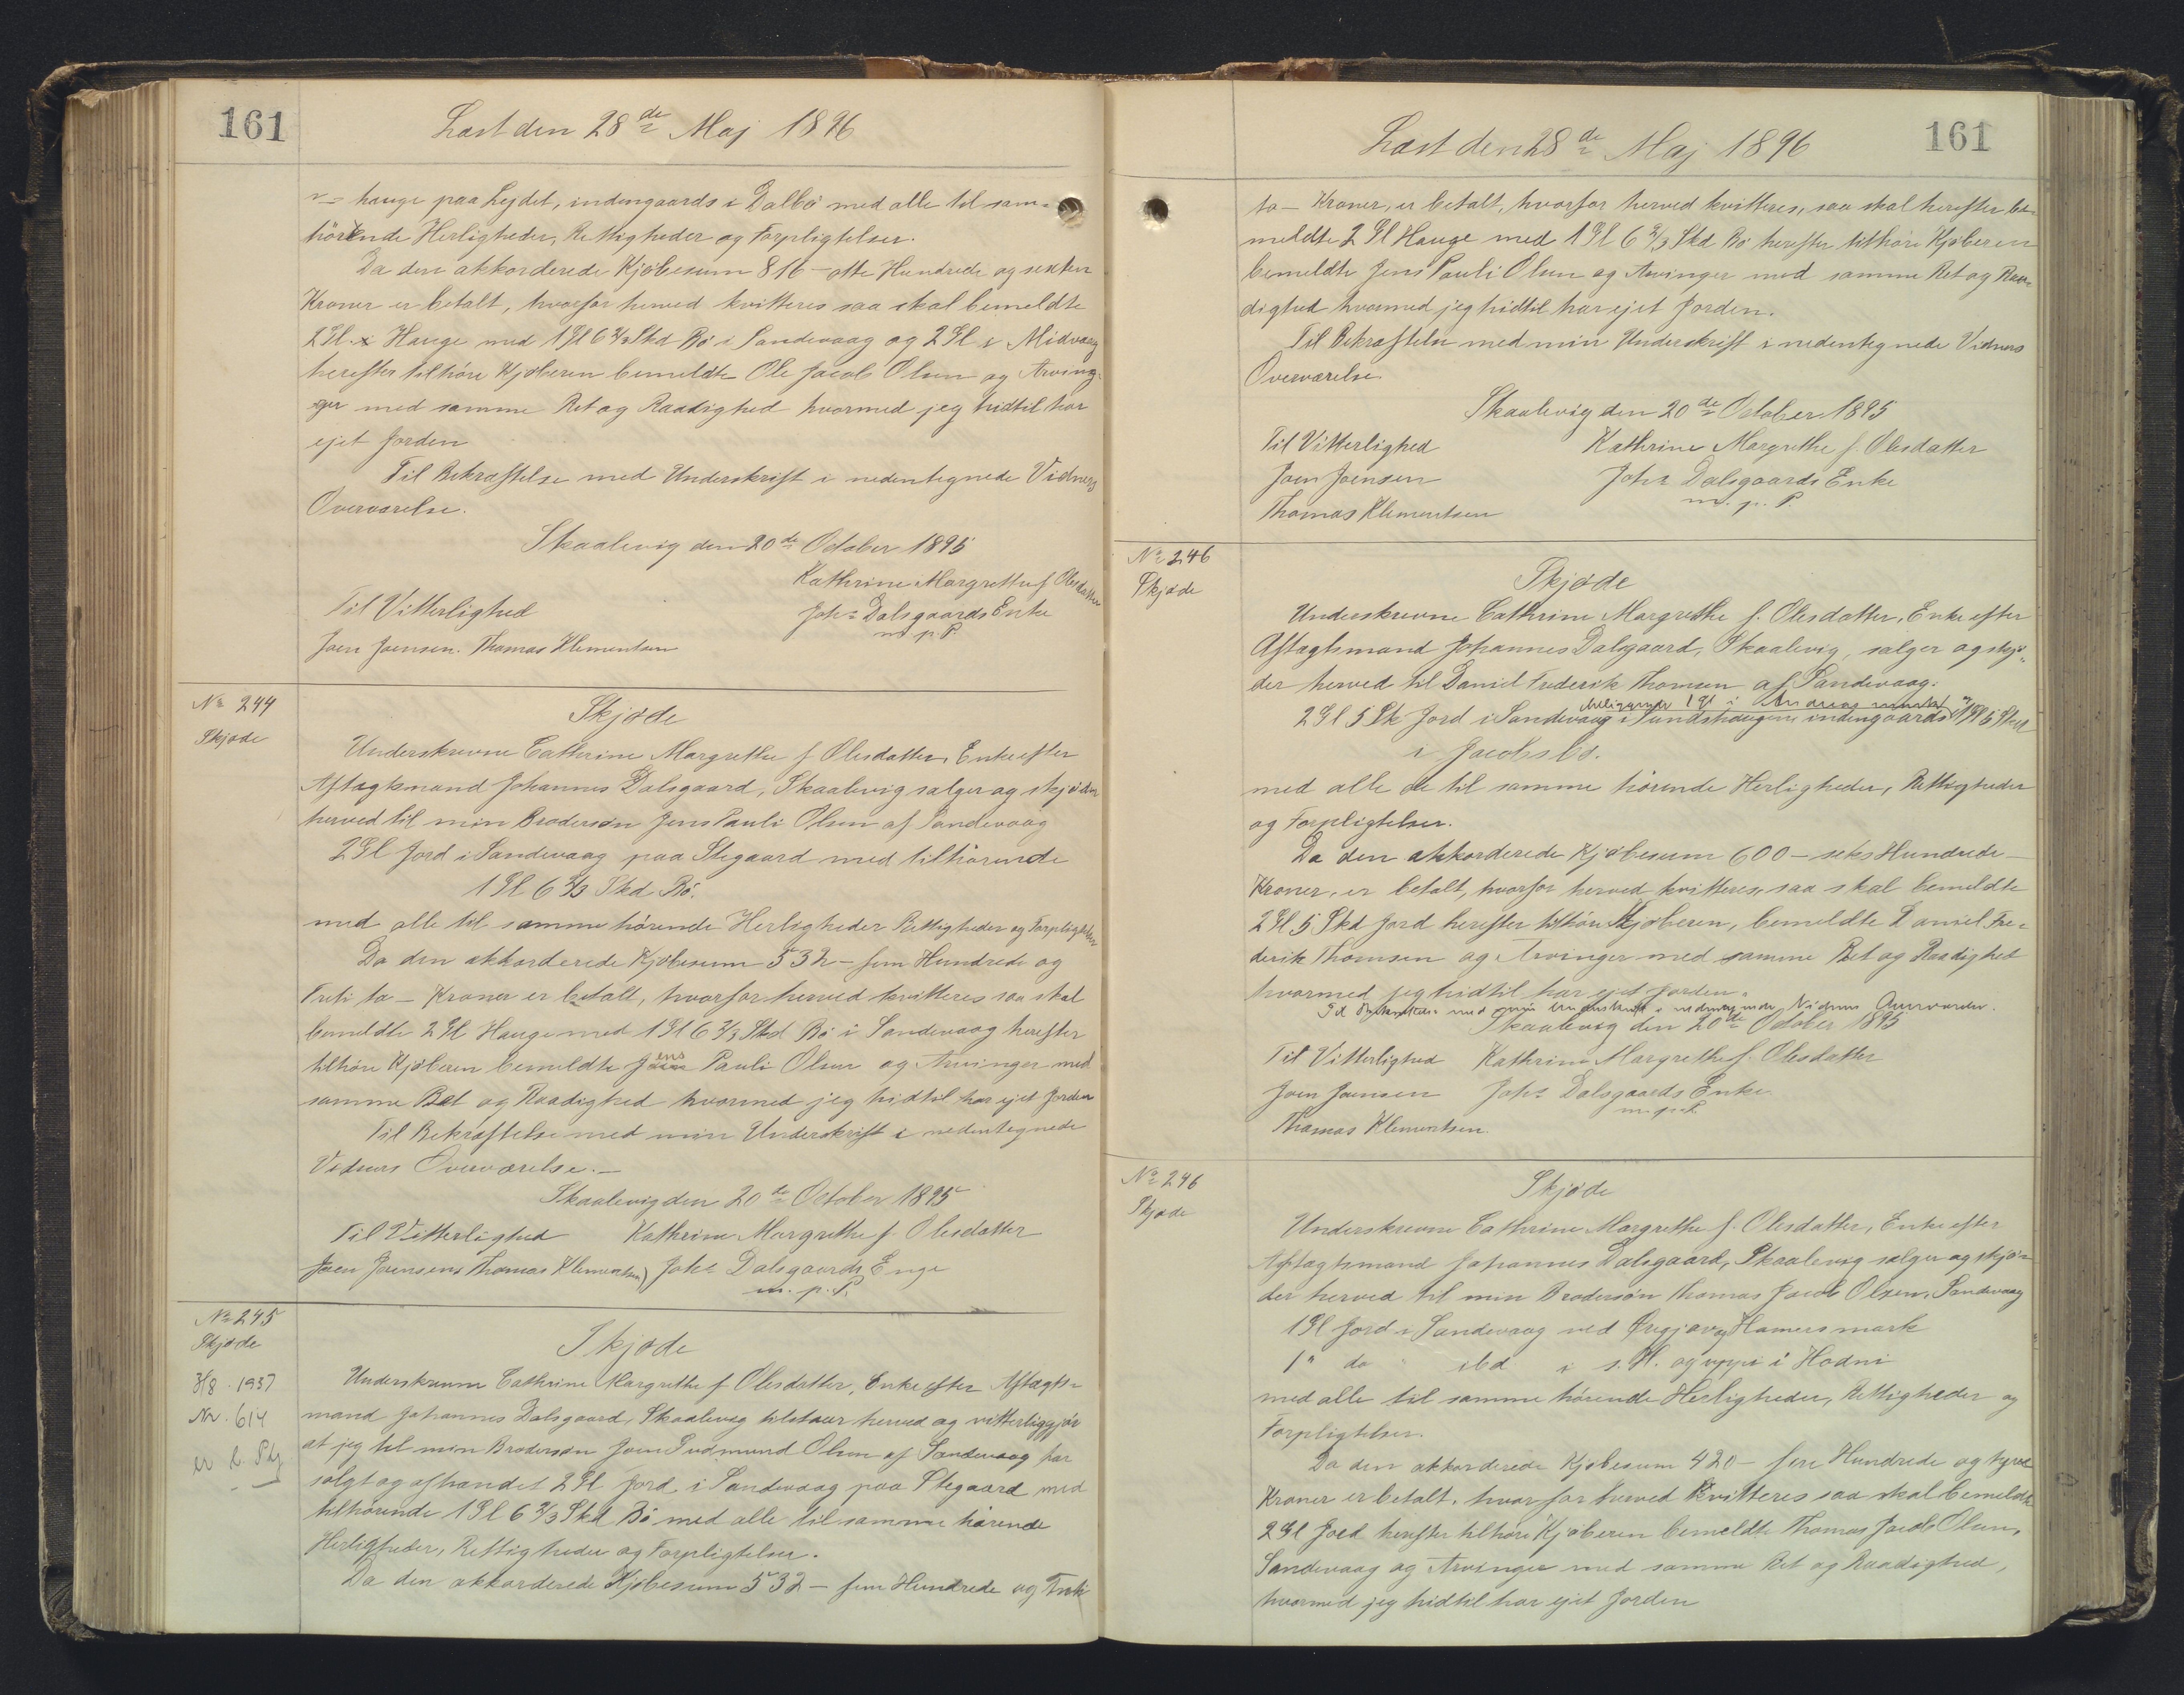 161
Læst den 28de Maj 1896
hauge paa Lejdet, indengaards i Dalbø med alle til sam-
hörende Herligheder, Rettigheder og Forpligtelser.
Da den akkorderede Kjøbesum 816 - otte Hundrede og sexten
Kroner er betalt, hvorfor herved kvitteres saa skal bemeldte
2 Gl. Hauge med 1 Gl 6 2/3 Skd Bø i Sandevaag og 2 Gl i Midvaag
herefter tilhöre Kjøberen bemeldte Ole Jacob Olsen og Arvin-
ger med samme Ret og Raadighed hvormed jeg hidtil har
ejet Jorden
Til Bekræftelse med Underskrift i nedentegnede Vidners
Overværelse.
Skaalevig den 20de October 1895
Kathrine Margrethe f. Olesdatter
Til Vitterlighed Johs Dalsgaards Enke
m. p. P.
Joen Joensen. Thomas Klementsen
No 244
Skjøde
Skjøde
Underskrevne Cathrine Margrethe f Olesdatter, Enke efter
Aftægtsmand Johannes Dalsgaard, Skaalevig sælger og skjøder
herved til min Brodersøn Jens Pauli Olsen af Sandevaag
2 Gl Jord i Sandevaag paa Stegaard med tilhörende
1 Gl 6 2/3 Skd Bø.
med alle til samme hörende Herligheder Rettigheder og Forpligtelser
Da den akkorderede Kjøbesum 532 - fem Hundrede og
Treti to - Kroner er betalt, hvorfor herved kvitteres saa skal
bemeldte 2 Gl Hauge med 1 Gl 6 2/3 Skd Bø i Sandevaag herefter
tilhöre Kjøberen bemeldte Jens Pauli Olsen og Arvinger med
samme Ret og Raadighed hvormed jeg hidtil har ejet Jorden
Til Bekræftelse med min Underskrift i nedentegnede
Vidners Overværelse. -
Skaalevig den 20de October 1895
Til Vitterlighed Kathrine Margrethe f. Olesdatter
Joen Joensen, Thomas Klementsen Johs Dalsgaards Enge
m. p. P.
No 245
Skjøde
3/8 . 1937
Nr. 614
Skjøde
Underskrevne Cathrine Margrethe f Olesdatter, Enke efter Aftægts-
mand Johannes Dalsgaard, Skaalevig tilstaar herved og vitterliggjör
at jeg til min Brodersøn Joen Gudmund Olsen af Sandevaag har
solgt og afhandet 2 Gl Jord i Sandevaag paa Stegaard med
tilhörende 1 Gl 6 2/3 Skd Bø med alle til samme hörende
Herligheder, Rettigheder og Forpligtelser.
Da den akkorderede Kjøbesum 532 - fem Hundrede og Treti
Læst den 28de Maj 1896
161
to - Kroner, er betalt, hvorfor herved kvitteres, saa skal herefter be-
meldte 2 Gl Hauge med 1 Gl 6 2/3 Skd Bø herefter tilhöre Kjøberen
bemeldte Jens Pauli Olsen og Arvinger med samme Ret og Raa-
dighed hvormed jeg hidtil har ejet Jorden.
Til Bekræftelse med min Underskrift i nedentegnede Vidners
Overværelse.
Skaalevig den 20de October 1895
Til Vitterlighed Kathrine Margrethe f. Olesdatter
Joen Joensen Johs Dalsgaards Enke
Thomas Klementsen m. p. P.
No 246
Skjøde
Skjøde
Underskrevne Cathrine Margrethe f. Olesdatter, Enke efter
Aftægtsmand Johannes Dalsgaard, Skaalevig, sælger og skjø-
der herved til Daniel Frederik Thomsen af Sandevaag.
beliggende 1 Gl i
2 Gl 5 Sk Jord i Sandevaag i Sundshaugene indengaards og 1 Gl 5 Skd
i Jacobsbø.
med alle de til samme hörende Herligheder, Rettigheder
og Forpligtelser.
Da den akkorderede Kjøbesum 600 - seks Hundrede -
Kroner, er betalt, hvorfor herved kvitteres, saa skal bemeldte
2 Gl 5 Skd Jord herefter tilhöre Kjøberen, bemeldte Daniel Fre-
derik Thomsen og Arvinger med samme Ret og Raadighed
hvormed jeg hidtil har ejet Jorden.
Til Bekræftelse med min Underskrift i nedentegnede Vidners Overværelse.
Skaalevig den 20de October 1895
Til Vitterlighed Kathrine Margrethe f. Olesdatter
Joen Joensen Johs Dalsgaards Enke
m. p. P.
Thomas Klementsen.
No 246
Skjøde
Skjøde
Underskrevne Cathrine Margrethe f. Olesdatter, Enke efter
Aftægtsmand Johannes Dalsgaard, Skaalevig sælger og skjø-
der herved til min Brodersøn Thomas Jacob Olsen, Sandevaag
1 Gl Jord i Sandevaag ved Hamersmark
1 " do " ibd i s. H. og uppi i Hodni
med alle til samme hörende Herligheder, Rettigheder og
Forpligtelser.
Da den akkorderede Kjøbesum 420 - fire Hundrede og tyve
Kroner er betalt, hvorfor herved kvitteres saa skal bemeldte
2 Gl Jord herefter tilhöre Kjøberen bemeldte Thomas Jacob Olsen,
Sandevaag og Arvinger med samme Ret og Raadighed,
hvormed jeg hidtil har ejet Jorden